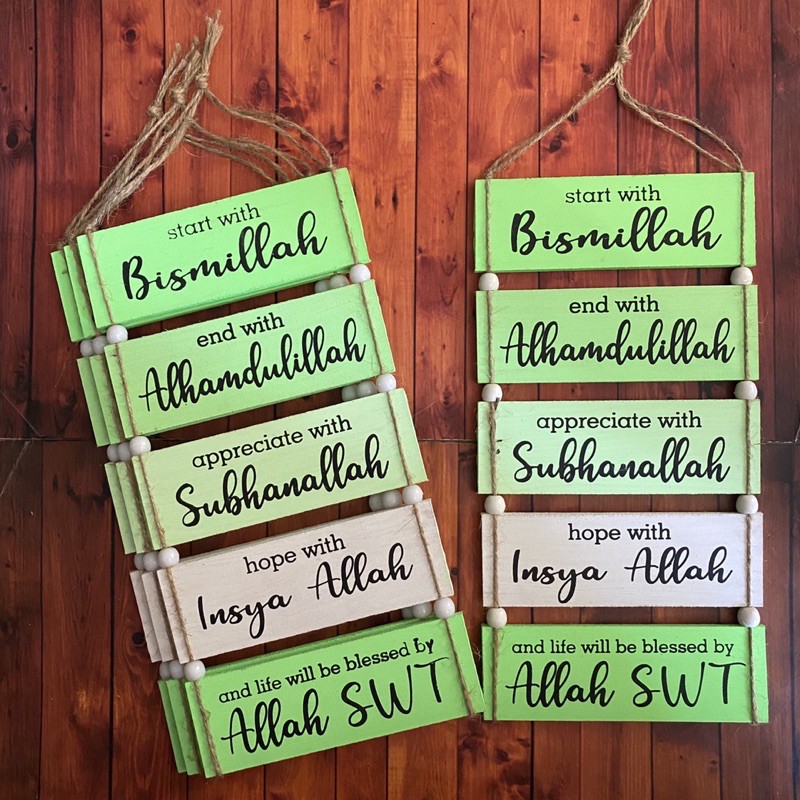 start with
Bismillah
end with
Alhamdulillah
appreciate with
Subhanallah
hope with
Insya Allah
and life will be blessed by
Allah SWT
start with
Bismillah
end with
Alhamdulillah
appreciate with
Subhanallah
hope with
Insya Allah
and life will be blessed by
Allah SWT